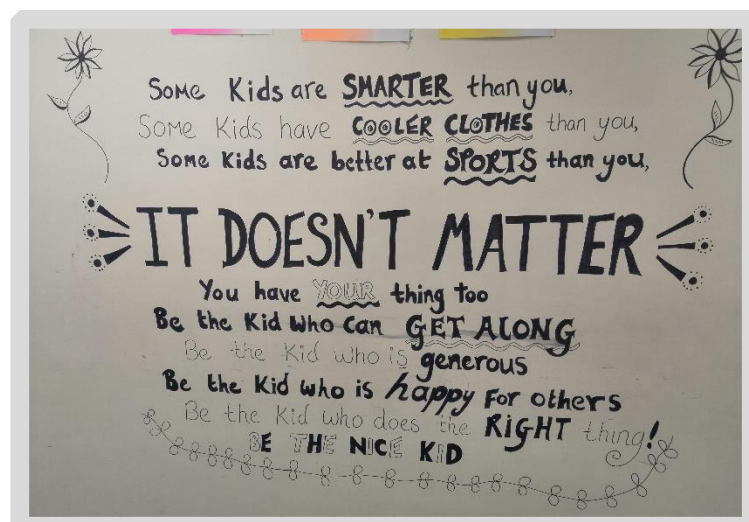 Some Kids are SMARTER than you,
Some Kids have COOLER CLOTHES than you,
Some Kids are better at SPORTS than you,
IT DOESN'T MATTER
You have YOUR thing too
Be the Kid who can GET ALONG
Be the Kid who is generous
Be the Kid who is happy for others
Be the Kid who does the RIGHT thing!
BE THE NICE KID